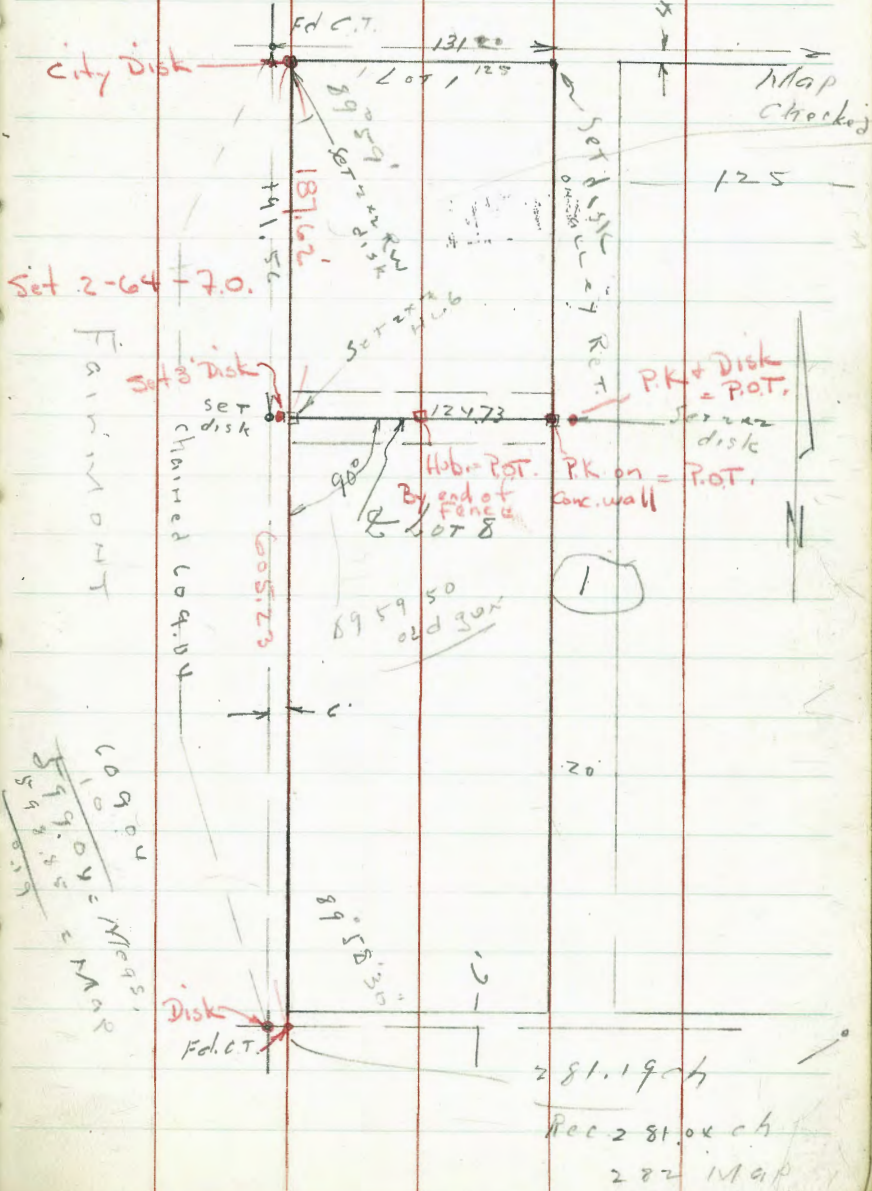 Fd C.T.
131.20
City Disk
Lot 1
125
Map
Checked
89° 59'
Set 2x2 RW
disk
Set disk
on
Ret.
125
187.62'
Set 2-64-7.0.
Set 2x2
Hub
Fairmont
Set 3' Disk
set
disk
124.73
P.K & Disk
= P.O.T.
Set 2x2
disk
90°
Hub = P.O.T.
By end of
Fence
P.K on = P.O.T.
Conc. wall
Lot 8
N
1
chained 609.04
605.23
89 59 50
6'
20'
609.04
10
599.04 = Meas.
598.85 = Map
0.19
89° 58' 30"
Disk
Fd. C.T.
281.19 ch
Rec 281.04 ch
282 Map